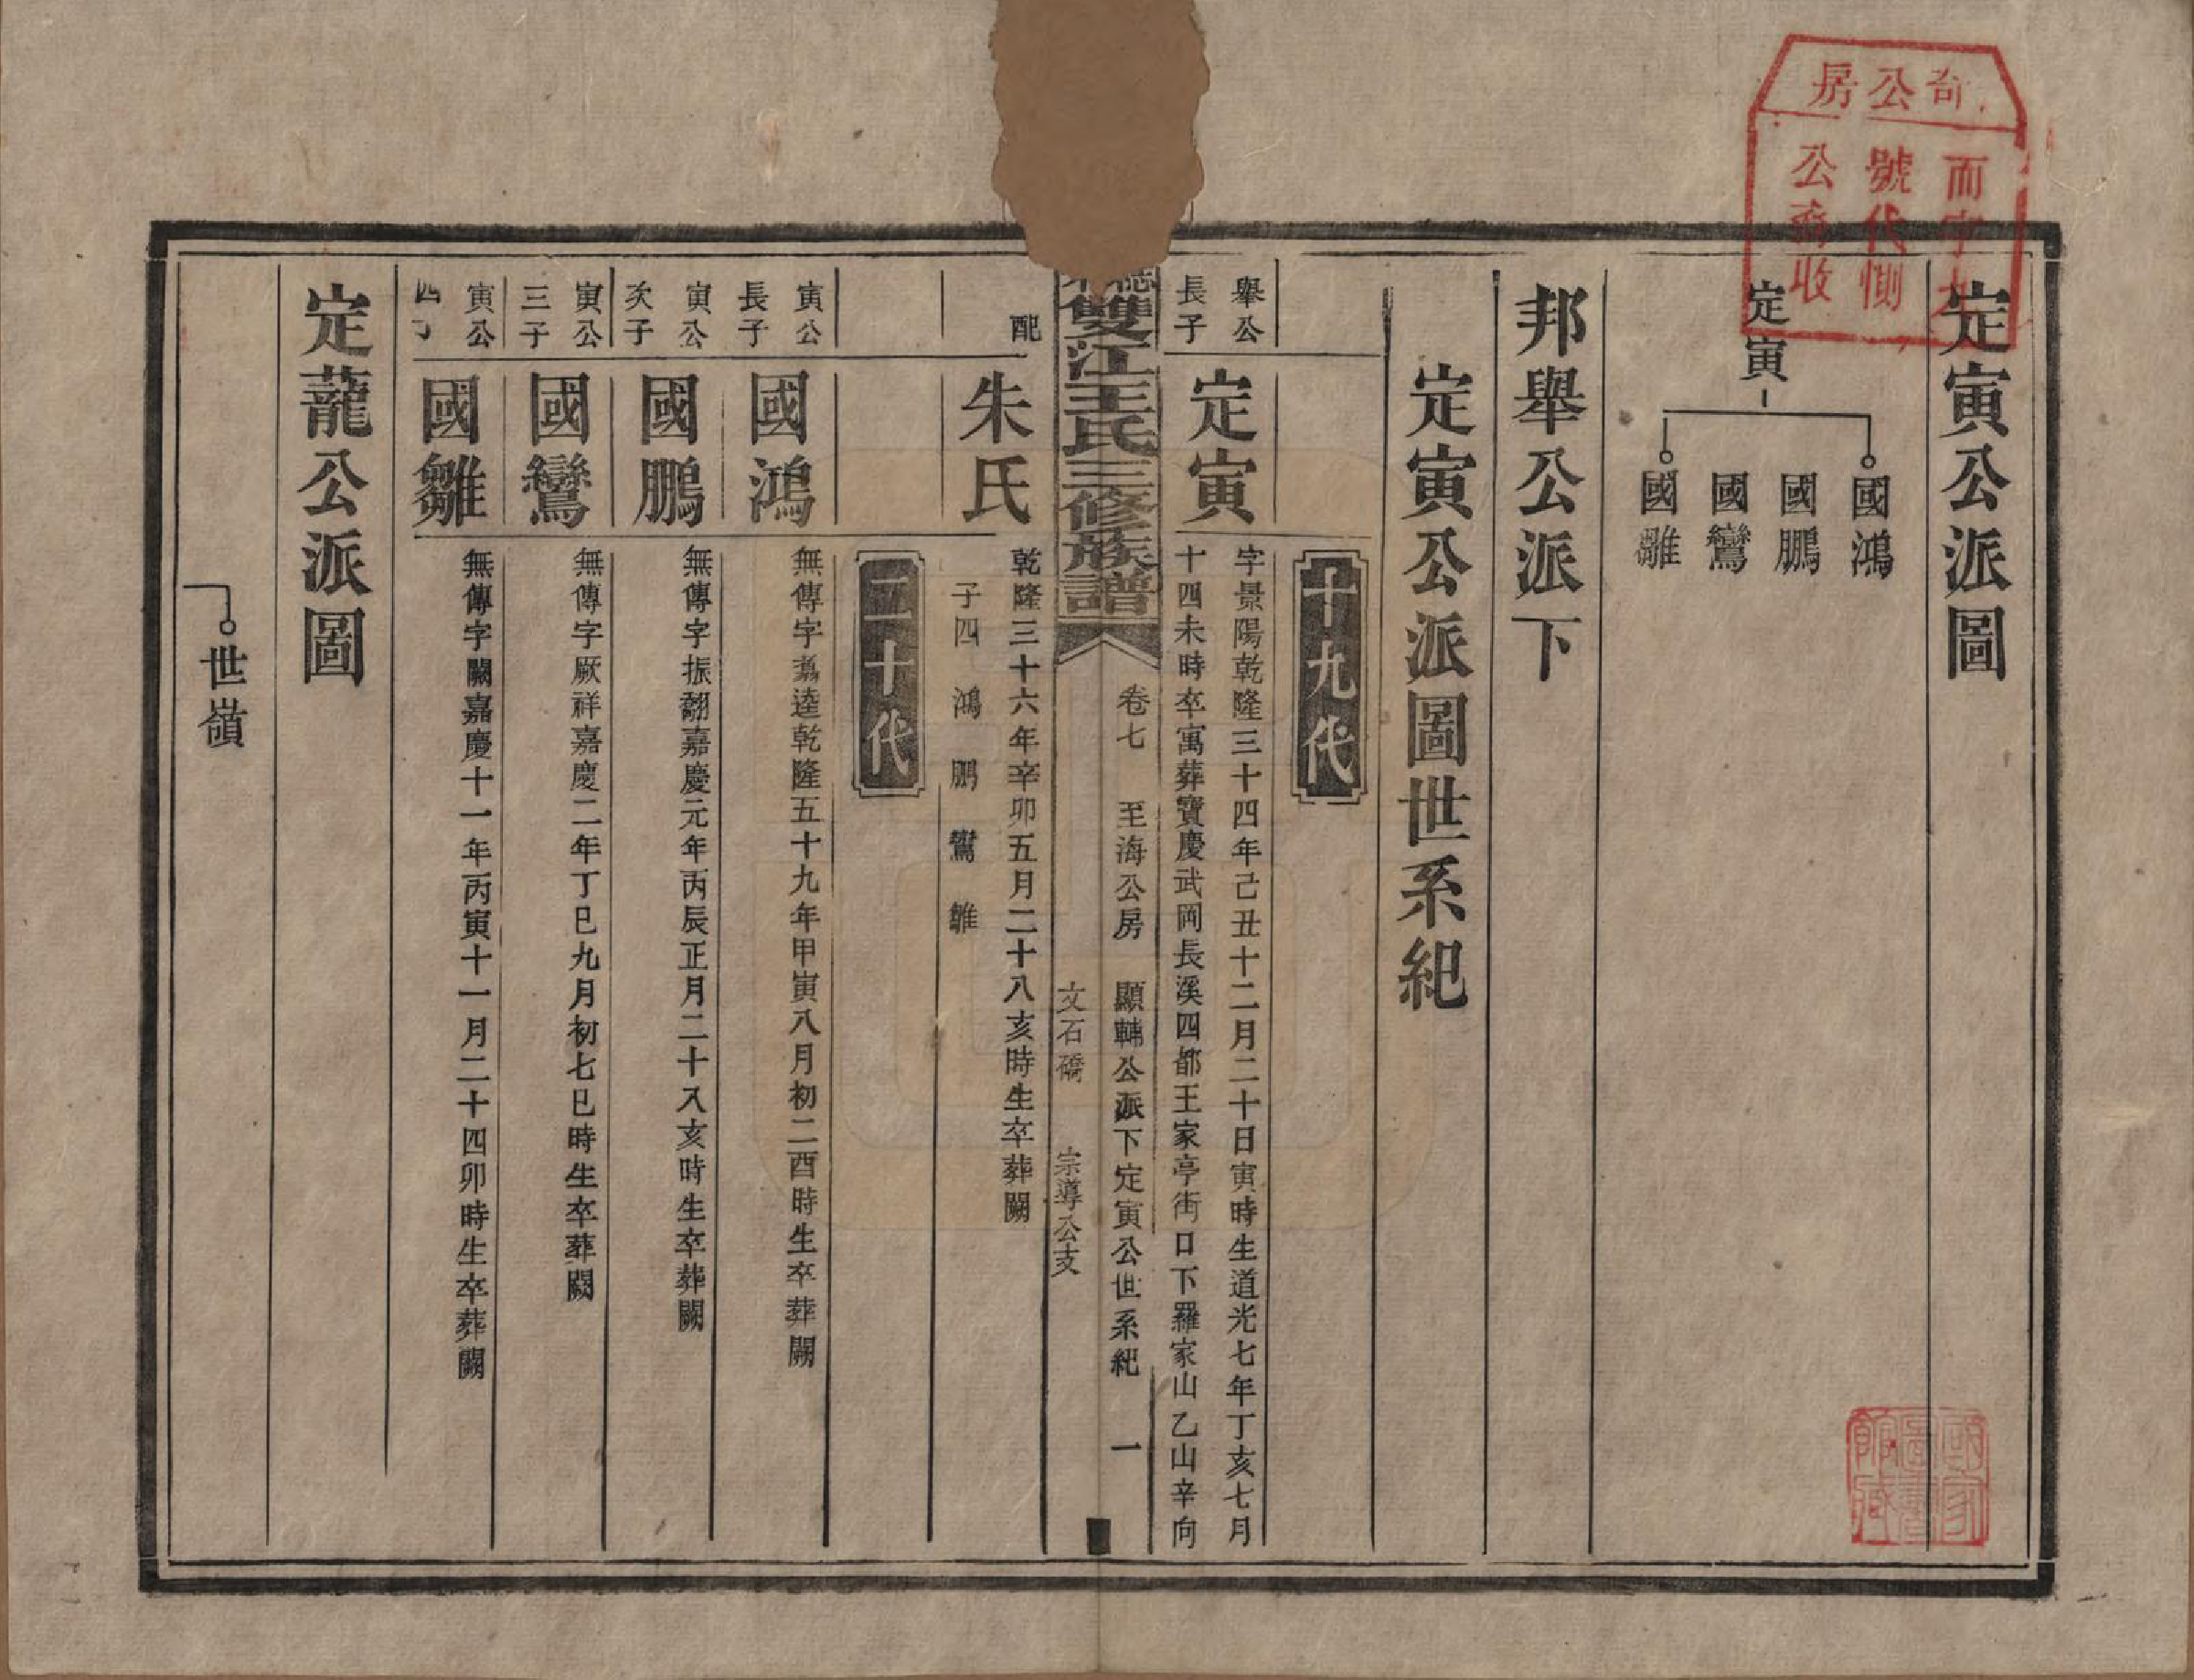 定寅公派圖
定寅
國鴻
國鵬
國鸞
國雛
邦舉公派下
定寅公派圖世系紀
十九代
舉公長子
定寅
字景陽乾隆三十四年己丑十二月二十日寅時生道光七年丁亥七月
十四未時卒寓葬寶慶武岡長溪四都王家亭街口下羅家山乙山辛向
雙江王氏三修族譜
卷七 至海公房 顯輔公派下定寅公世系紀 一
文石礄 宗導公支
配
朱氏
乾隆三十六年辛卯五月二十八亥時生卒葬闕
子四 鴻 鵬 鸞 雛
二十代
寅公長子
國鴻
無傳字逵乾隆五十九年甲寅八月初二酉時生卒葬闕
寅公次子
國鵬
無傳字振翮嘉慶元年丙辰正月二十八亥時生卒葬闕
寅公三子
國鸞
無傳字厥祥嘉慶二年丁巳九月初七巳時生卒葬闕
寅公四子
國雛
無傳字闕嘉慶十一年丙寅十一月二十四卯時生卒葬闕
定蘢公派圖
世嶺
公房
而字
號
公
收
國家圖書館藏